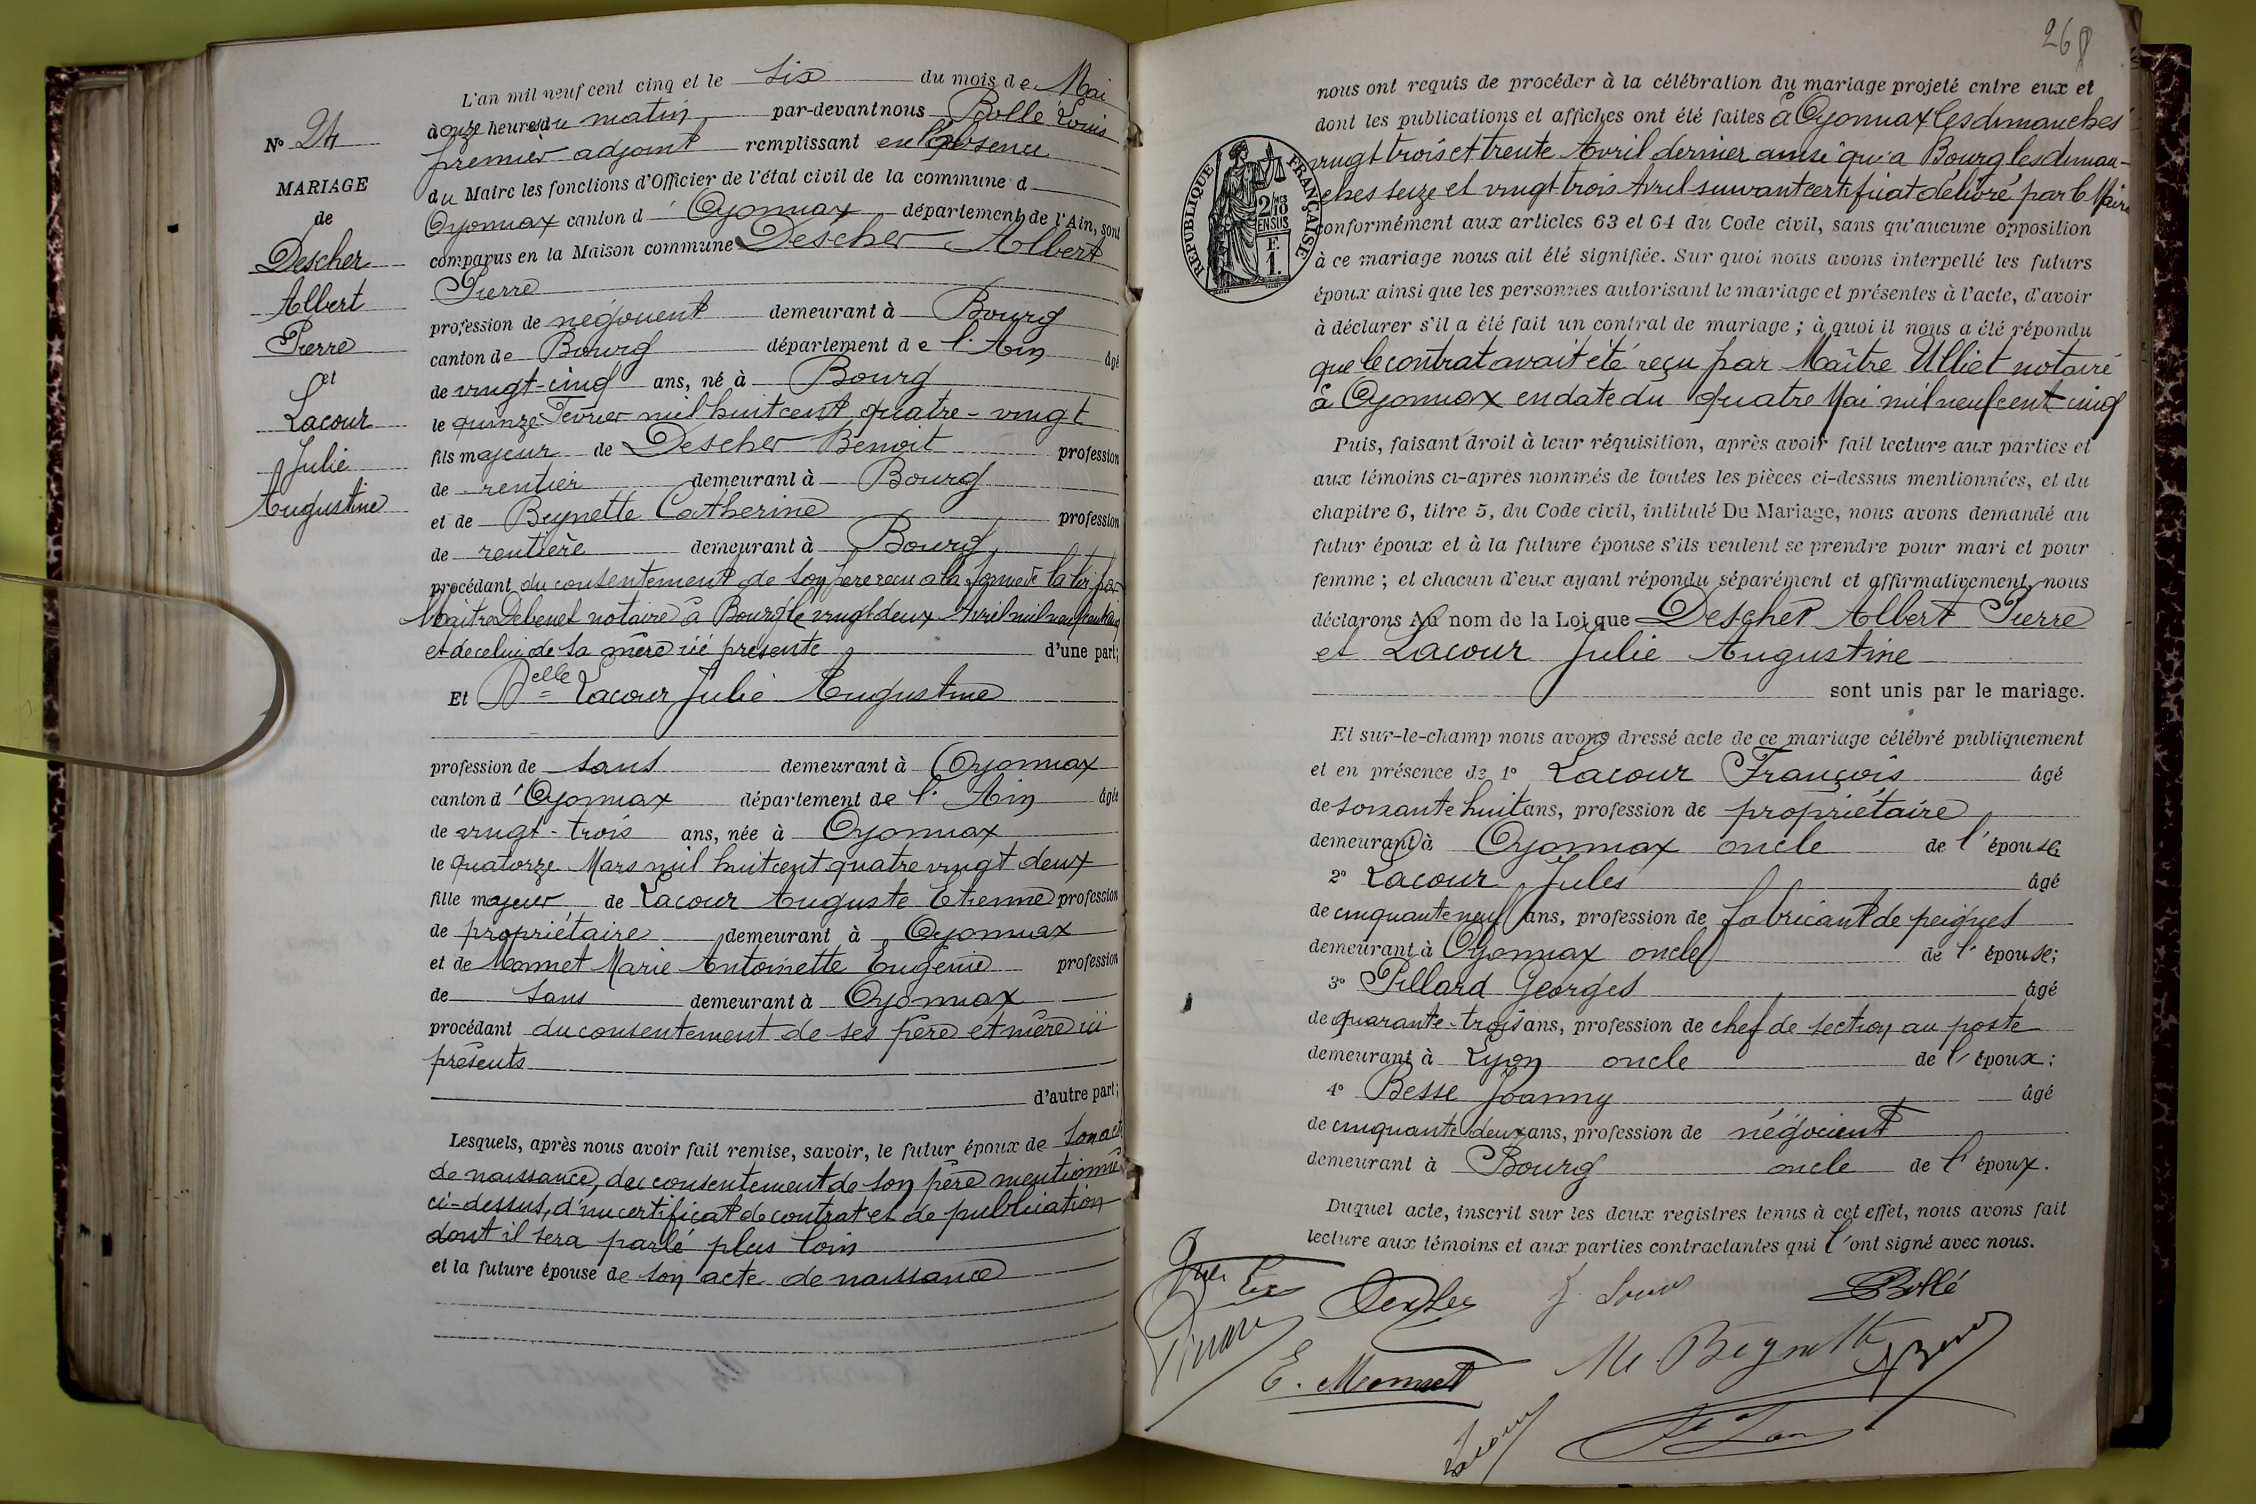 N° 24
MARIAGE
de
Descher
Albert
Pierre
et
Lacour
Julie
Augustine
L'an mil neuf cent cinq et le six du mois de Mai
à onze heures du matin par-devant nous Bollé Louis
premier adjoint remplissant en l'absence
du Maire les fonctions d'Officier de l'état civil de la commune d
Oyonnax canton d' Oyonnax département de l'Ain, sont
comparus en la Maison commune Descher Albert
Pierre
profession de négocient demeurant à Bourg
canton de Bourg département de l'Ain âgé
de vingt-cinq ans, né à Bourg
le quinze Février mil huit cent quatre-vingt
fils majeur de Descher Benoit profession
de rentier demeurant à Bourg
et de Beynette Catherine profession
de rentière demeurant à Bourg
procédant du consentement de son père recu a la forme de la loi par
Maître Debenet notaire à Bourg le vingt deux Avril mil neuf cent cinq
et de celui de sa mère ici présente d'une part;
Et Delle Lacour Julie Augustine
profession de sans demeurant à Oyonnax
canton d'Oyonnax département de l'Ain âgée
de vingt-trois ans, née à Oyonnax
le quatorze Mars mil huit cent quatre vingt deux
fille majeur de Lacour Auguste Etienne profession
de propriétaire demeurant à Oyonnax
et de Monnet Marie Antoinette Eugénie profession
de sans demeurant à Oyonnax
procédant du consentement de ses père et mère ici
présents
d'autre part;
Lesquels, après nous avoir fait remise, savoir, le futur époux de son acte
de naissance, du consentement de son père mentionné
ci-dessus, d'un certificat de contrat et de publication
dont il sera parlé plus loin
et la future épouse de son acte de naissance
268
nous ont requis de procéder à la célébration du mariage projeté entre eux et
dont les publications et affiches ont été faites à Oyonnax les dimanches
vingt trois et trente Avril dernier ainsi qu'a Bourg les diman-
ches seize et vingt trois Avril suivant certificat délivré par le Maire
RÉPUBLIQUE FRANÇAISE
2/10
EN SUS
F.
1.
conformément aux articles 63 et 64 du Code civil, sans qu'aucune opposition
à ce mariage nous ait été signifiée. Sur quoi nous avons interpellé les futurs
époux ainsi que les personnes autorisant le mariage et présentes à l'acte, d'avoir
à déclarer s'il a été fait un contrat de mariage; à quoi il nous a été répondu
que le contrat avait été reçu par Maître Ulliet notaire
à Oyonnax en date du quatre Mai mil neuf cent cinq
Puis, faisant droit à leur réquisition, après avoir fait lecture aux parties et
aux témoins ci-après nommés de toutes les pièces ci-dessus mentionnées, et du
chapitre 6, titre 5, du Code civil, intitulé Du Mariage, nous avons demandé au
futur époux et à la future épouse s'ils veulent se prendre pour mari et pour
femme; et chacun d'eux ayant répondu séparément et affirmativement, nous
déclarons Au nom de la Loi que Descher Albert Pierre
et Lacour Julie Augustine
sont unis par le mariage.
Et sur-le-champ nous avons dressé acte de ce mariage célébré publiquement
et en présence de 1° Lacour François âgé
de soixante huit ans, profession de propriétaire
demeurant à Oyonnax oncle de l'épouse
2° Lacour Jules âgé
de cinquante neuf ans, profession de fabricant de peignes
demeurant à Oyonnax oncle de l'épouse;
3° Pillard Georges âgé
de quarante-trois ans, profession de chef de section au poste
demeurant à Lyon oncle de l'époux;
4° Besse Joanny âgé
de cinquante deux ans, profession de négocient
demeurant à Bourg oncle de l'époux.
Duquel acte, inscrit sur les deux registres tenus à cet effet, nous avons fait
lecture aux témoins et aux parties contractantes qui l'ont signé avec nous.
Bollé
E. Monnet
M Beynette
Lacour